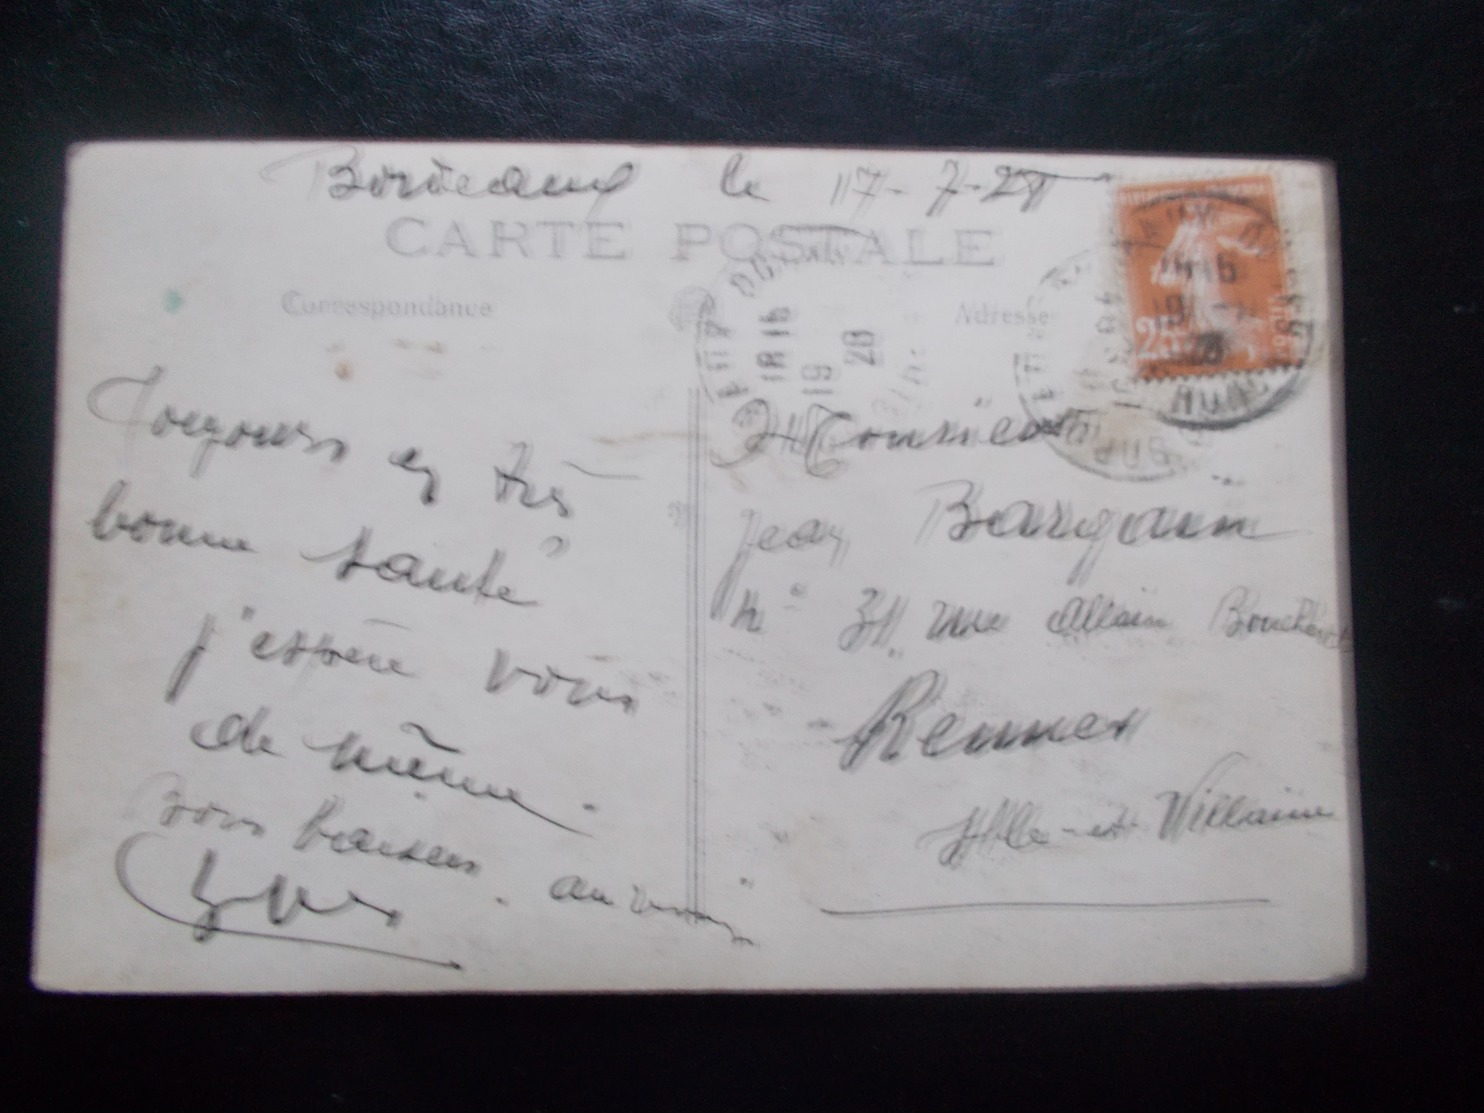 Bordeaux le 17-7-28
CARTE POSTALE
Correspondance
Adresse
18 15
19
28
25
Toujours en très
bonne santé
j'espère vous
de même.
Bons baisers. au revoir
Yves
Monsieur
Jean Bargain
n° 31 rue Allain Bouchard
Rennes
Ille-et Villaine